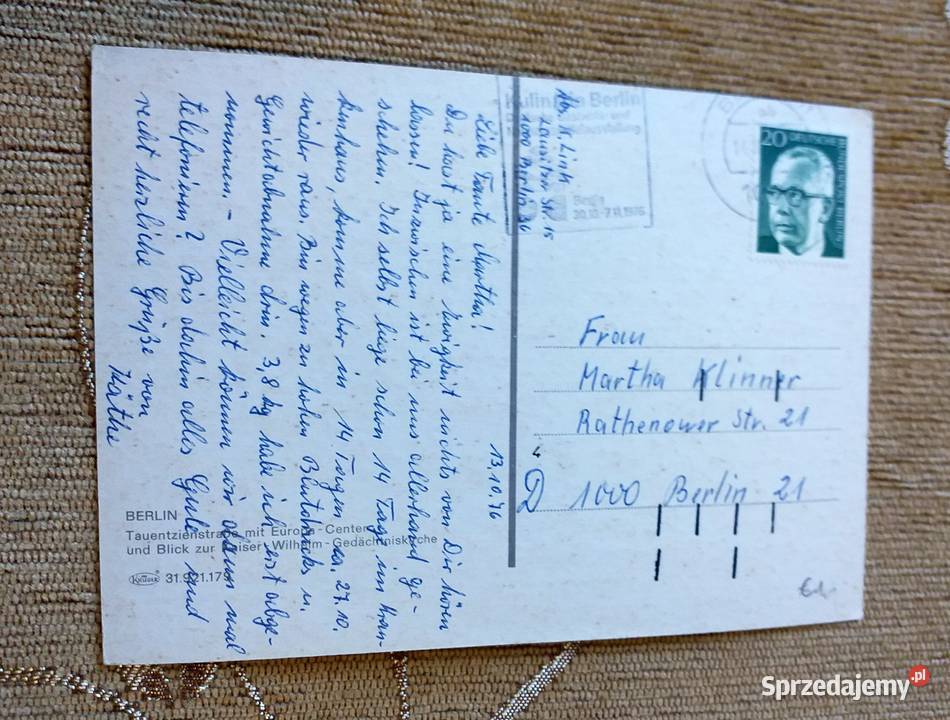 13.10.76
Liebe Tante Martha!
Du hast ja eine Ewigkeit nichts von Dir hören
lassen! Inzwischen ist bei uns allerhand ge-
schehen. Ich selbst liege schon 14 Tage im Kran-
kenhaus, komme aber in 14 Tagen, ca. 27.10.
wieder raus. Bin wegen zu hohen Blutdrucks u.
Gewichtabnahme drin. 3,8 kg habe ich erst abge-
nommen. - Vielleicht können wir dann mal
telefonieren? Bis dahin alles Gute und
recht herzliche Grüße von
Käthe
BERLIN
Tauentzienstraße mit Europa-Center
und Blick zur Kaiser-Wilhelm-Gedächtniskirche
KRÜGER 31.921.179
Abs. K. Link
Lausitzer Str. 15
1000 Berlin 36
Kulinaria Berlin
Berlin
30.10.-7.11.1976
20 DEUTSCHE BUNDESPOST BERLIN
Frau
Martha Klinner
Rathenower Str. 21
D 1000 Berlin 21
Sprzedajemy.pl